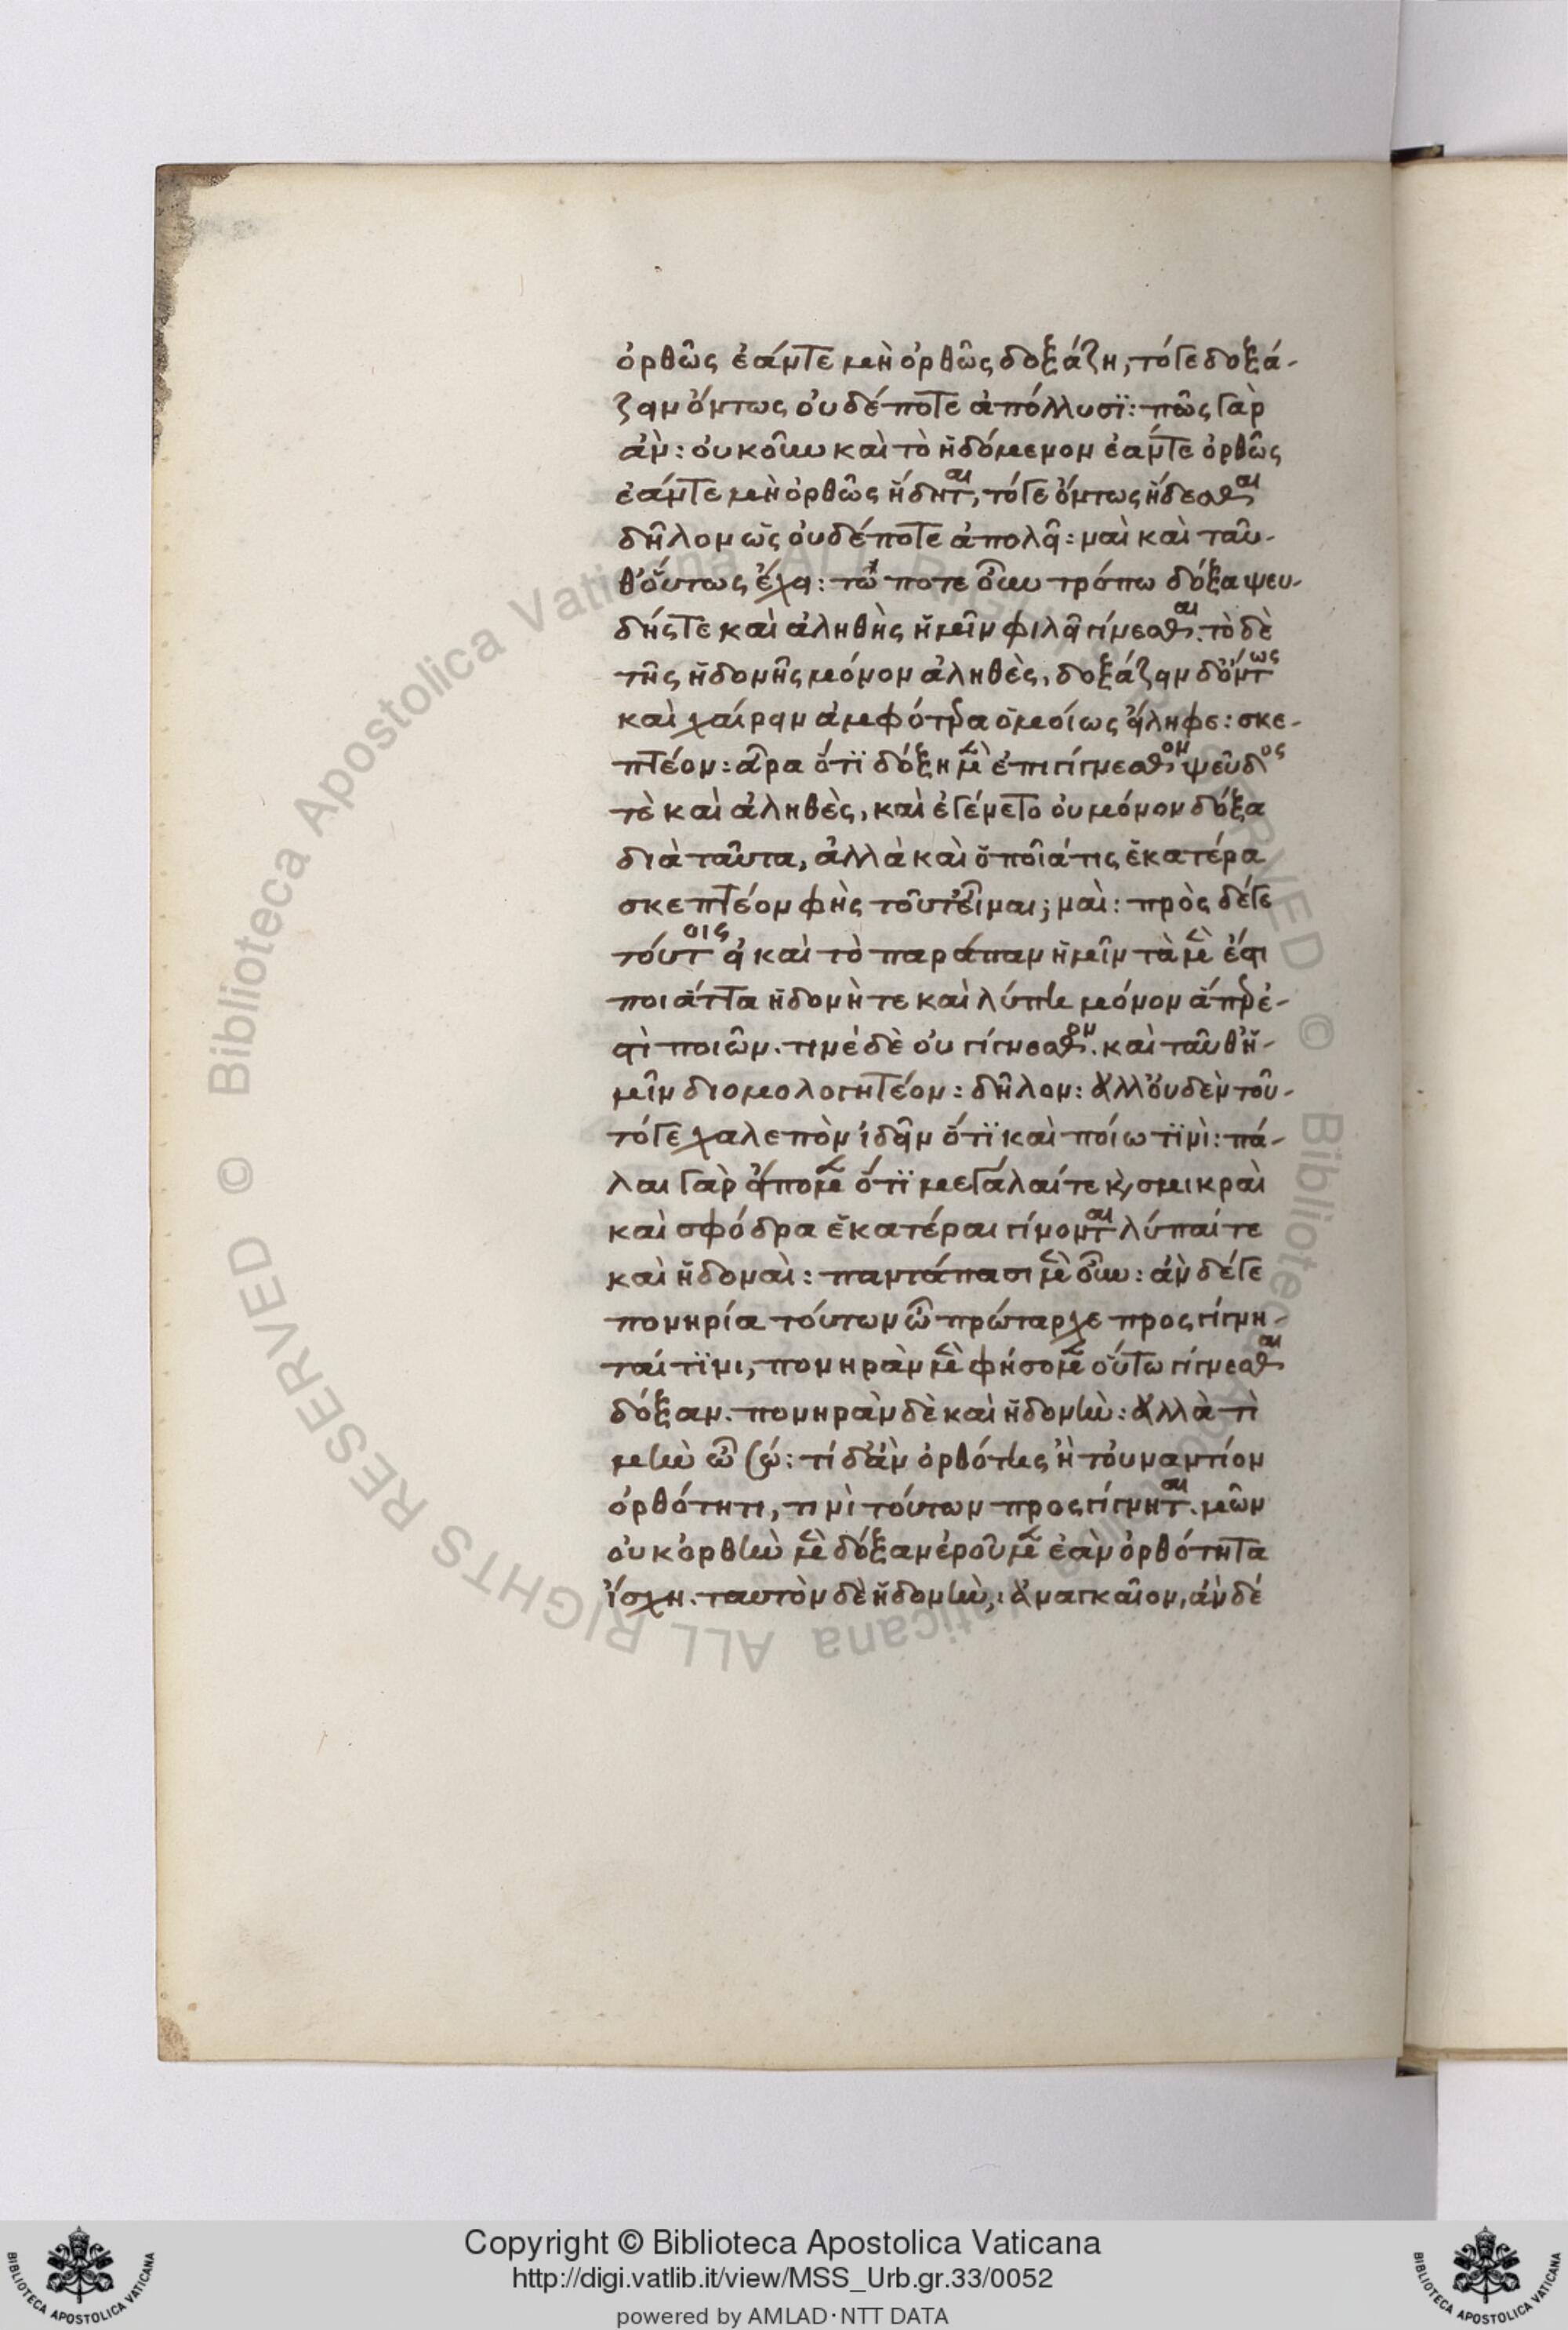 ὀρθῶς ἐάντε μὴ ὀρθῶς δοξάζη, τότε δοξά-
ζειν ὄντως οὐδέποτε ἀπόλλυσϊ: πῶς γὰρ
ἀν: οὐκοῦν καὶ τὸ ἡδόμενον ἐάντε ὀρθῶς
ἐάντε μὴ ὀρθῶς ἥδηται, τότε ὄντως ἥδεσθαι
δῆλον ὡς οὐδέποτε ἀπολεῖ: ναὶ καὶ ταῦ-
θ' οὕτως ἔχει: τῶ ποτε οὖν τρόπω δόξα ψευ-
δήςτε καὶ ἀληθὴς ἡμῖν φιλεῖ γίνεσθαι. τὸ δὲ
τῆς ἡδονῆς μόνον ἀληθὲς, δοξάζειν δ' ὄντως
καὶ χαίρειν ἀμφότερα ὁμοίως εἴληφε: σκε-
πτέον: ἆρα ὅτϊ δόξη μὲν ἐπιγίγνεσθον ψεῦδος
τὲ καὶ ἀληθὲς, καὶ ἐγένετο οὐ μόνον δόξα
διὰ ταῦτα, ἀλλὰ καὶ ὁποῖά τις ἑκατέρα
σκεπτέον φὴς τοῦτ' εἶναι; ναὶ: πρὸς δέγε
τούτοις εἰ καὶ τὸ παράπαν ἡμῖν τὰ μὲν ἐστι
ποι ἄττα ἡδονὴ τε καὶ λύπη μόνον ἅπερ ἐ-
στὶ ποιῶν. τινὲ δὲ οὐ γίγνεσθον. καὶ ταῦθ' ἡ-
μῖν διομολογητέον: δῆλον: ἀλλ' οὐδὲν τοῦ-
τόγε χαλεπὸν ἰδεῖν ὅτϊ καὶ ποίω τϊνὶ: πά-
λαι γὰρ εἴπομεν ὅτϊ μεγάλαίτε κ, σμικραὶ
καὶ σφόδρα ἑκατέραι γίνονται λύπαίτε
καὶ ἡδοναὶ: παντάπασι μὲν οὖν: ἀν δέγε
πονηρία τούτων ὦ πρώταρχε προςγίγνη-
ταί τϊνι, πονηρὰν μὲν φήσομεν οὕτω γίγνεσθαι
δόξαν. πονηρὰν δὲ καὶ ἡδονὴν: ἀλλὰ τὶ
μὴν ὦ σώ: τί δ' ἀν ὀρθότης ἢ τοὐναντίον
ὀρθότητι, τινὶ τούτων προςγίγνηται. μῶν
οὐκ ὀρθὴν μὲν δόξαν ἐροῦμεν ἐὰν ὀρθότητα
ἴσχη. ταυτὸν δὲ ἡδονὴν,: ἀναγκαῖον, ἀν δέ
Copyright © Biblioteca Apostolica Vaticana
http://digi.vatlib.it/view/MSS_Urb.gr.33/0052
powered by AMLAD·NTT DATA